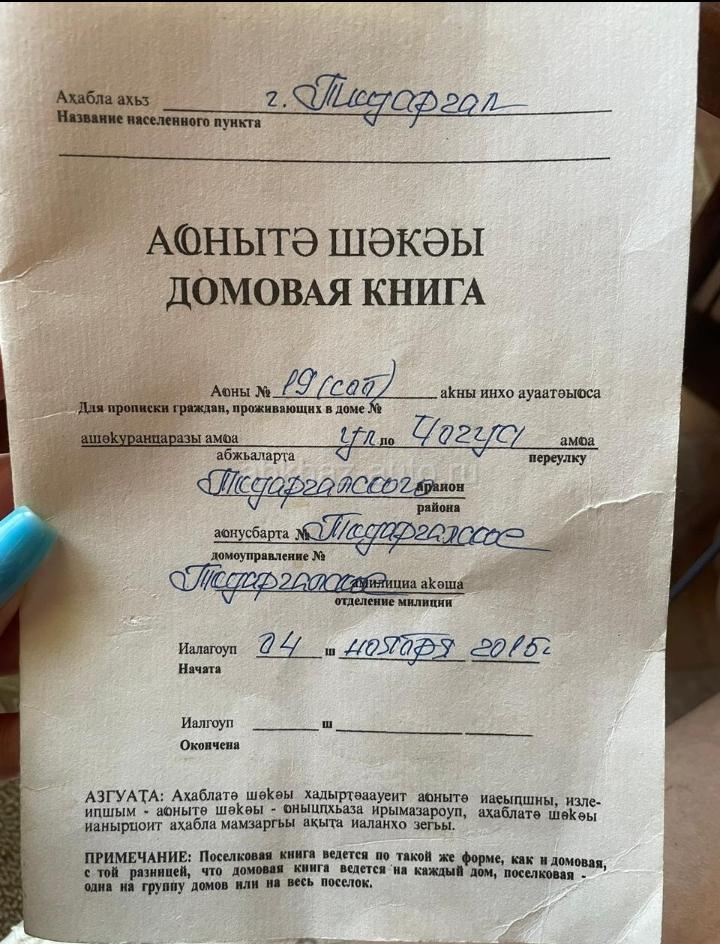 Аҳабла ахьӡ г. Ткуарчал
Название населенного пункта
АҨНЫТӘ ШӘҞӘЫ
ДОМОВАЯ КНИГА
Аҩны № 19 (сап) аҟны инхо ауаатәыҩса
Для прописки граждан, проживающих в доме №
ашәҟуранцаразы амҩа ул по Чачуа амҩа
абжьаларҭа переулку
Ткуарчалского араион
района
аҩнусбарта № Ткуарчалское
домоуправление №
Ткуарчалское амилициа аҟәша
отделение милиции
Иалагоуп 04 ш ноября 2015г
Начата
Иалгоуп ш
Окончена
АЗГУАҬА: Аҳаблатә шәҟәы хадырҭәаауеит аҩнытә иаеыԥшны, изле-
иԥшым - аҩнытә шәҟәы - ҩныцԥхьаза ирымазароуп, аҳаблатә шәҟәы
ианырцоит аҳабла мамзаргьы аҟыҭа иаланхо зегьы.
ПРИМЕЧАНИЕ: Поселковая книга ведется по такой же форме, как и домовая,
с той разницей, что домовая книга ведется на каждый дом, поселковая -
одна на группу домов или на весь поселок.
abkhaz-auto.ru